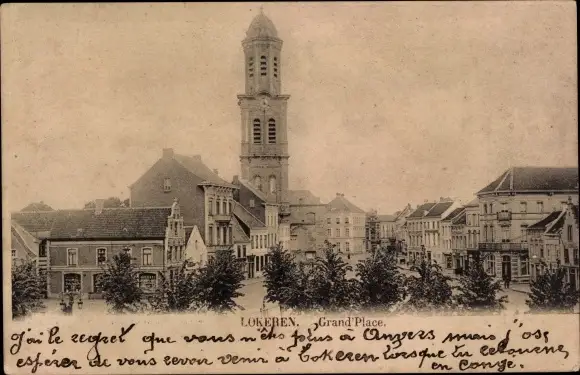 LOKEREN. Grand'Place.
J'ai le regret que vous n'êtes plus à Anvers mais j'ose
espérer de vous revoir venir à Lokeren lorsque tu retourne
en congé.